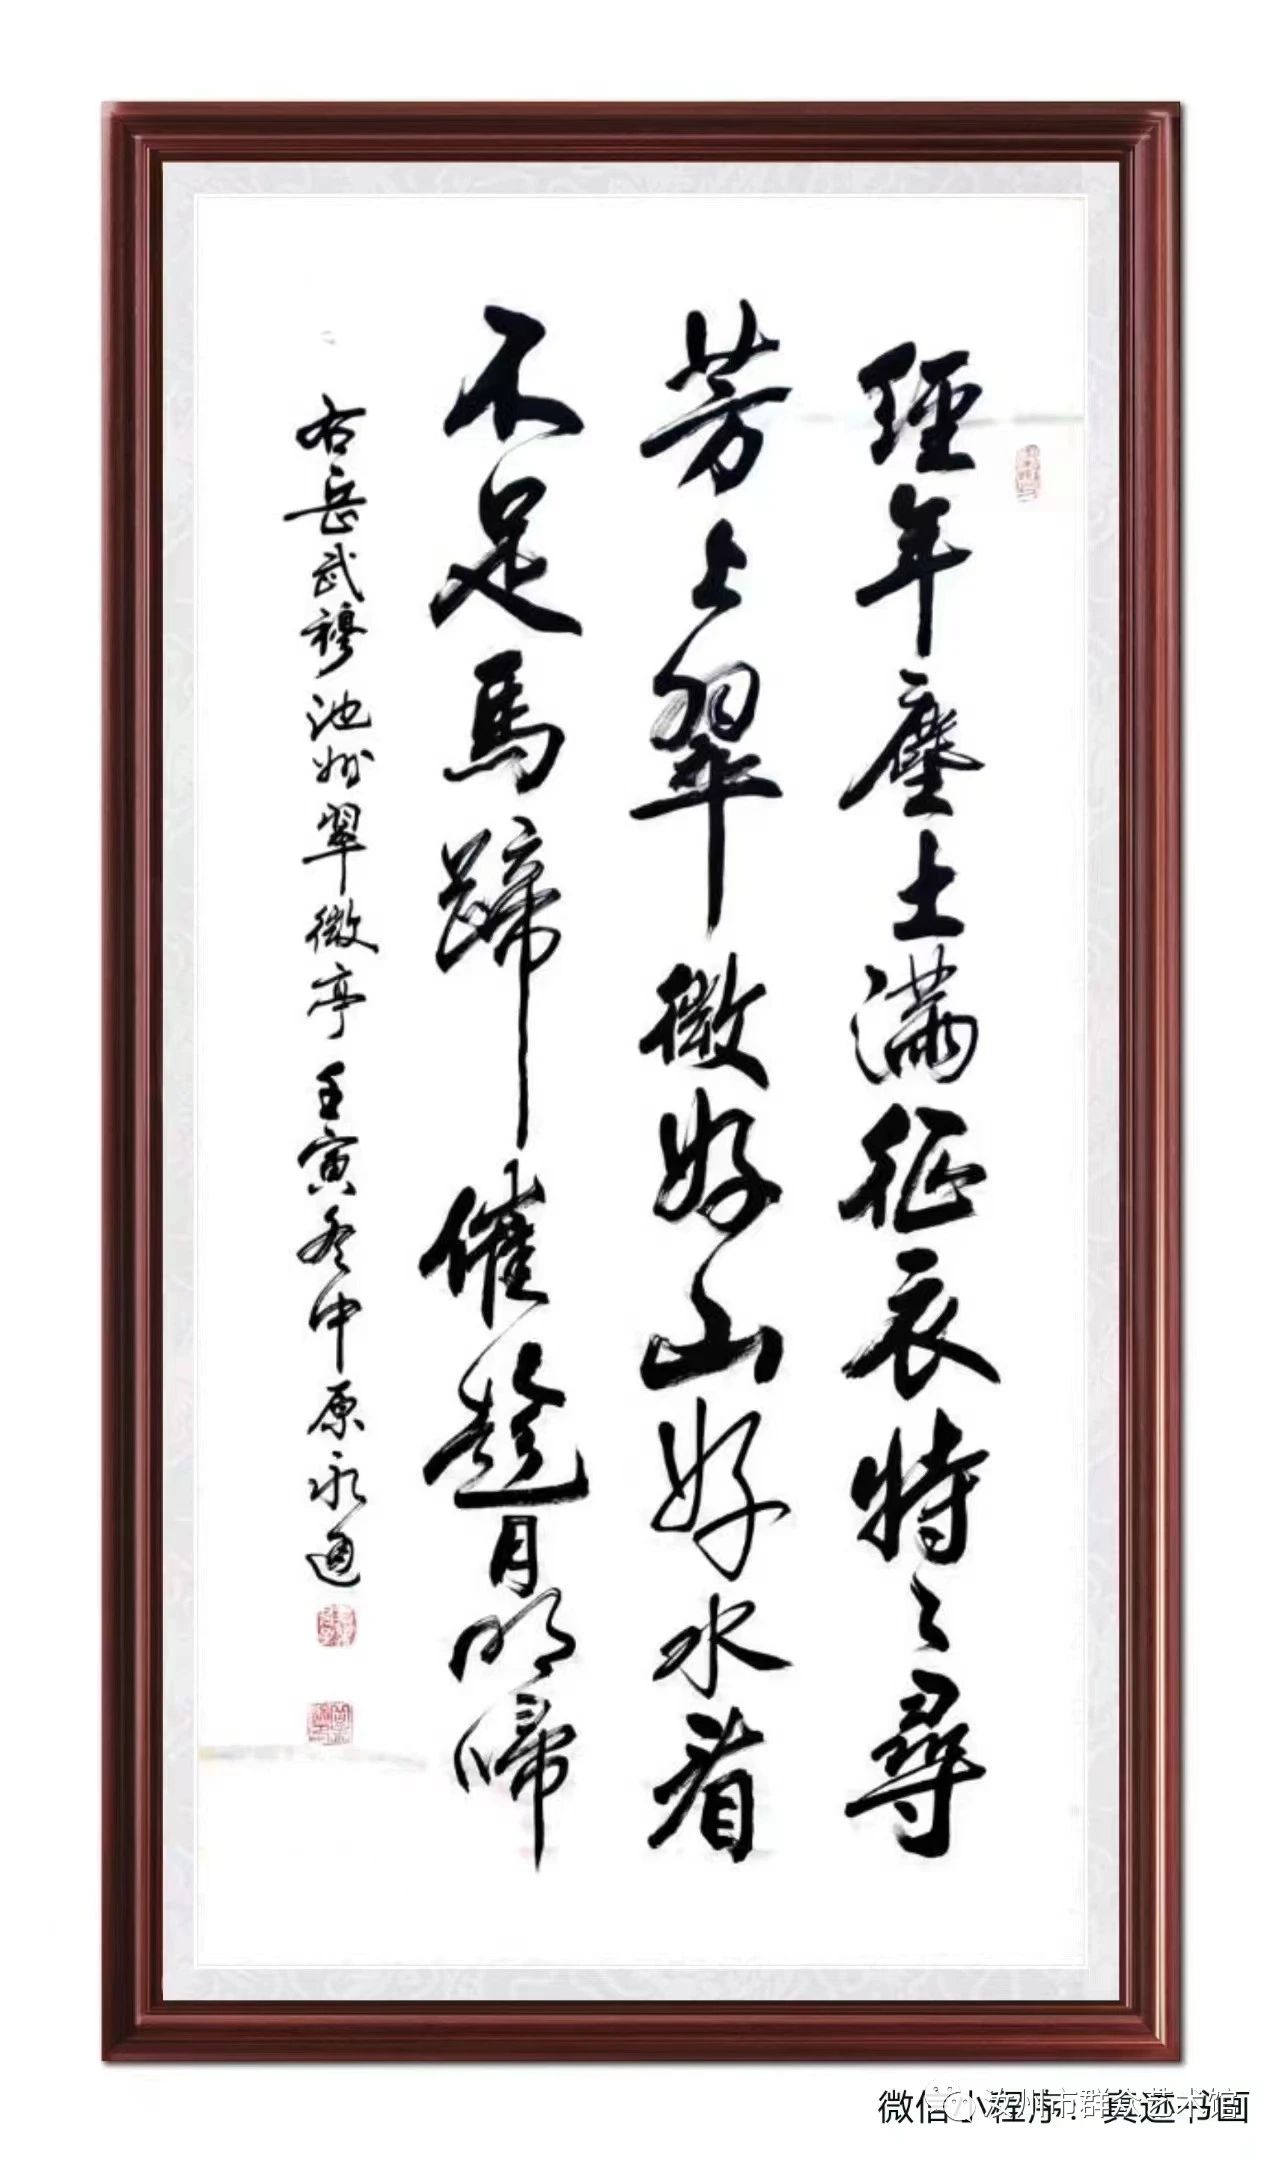 經年塵土滿征衣特々尋
芳上翠微好山好水看
不足馬蹄催趁月明歸
右岳武穆池州翠微亭 壬寅冬中原永通
微信小程序：真迹书画
汝州市群众艺术馆